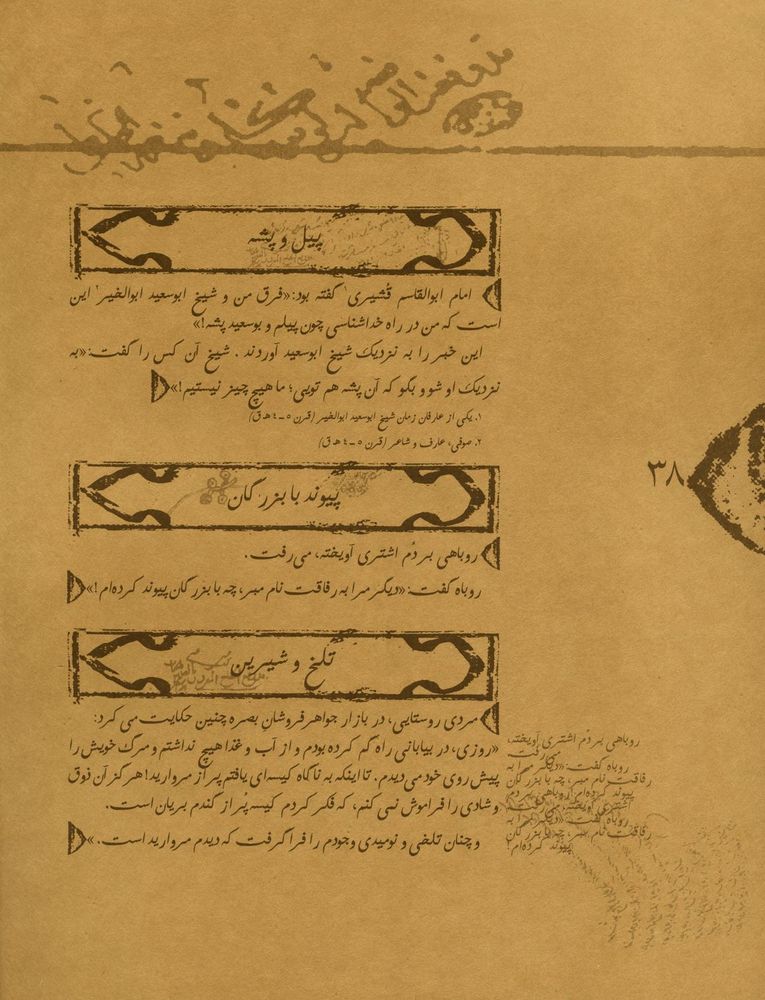 پیل و پشه
امام ابوالقاسم قُشیری۱ گفته بود: «فرق من و شیخ ابوسعید ابوالخیر۲ این
است که من در راه خداشناسی چون پیلم و بوسعید پشه!»
این خبر را به نزدیک شیخ ابوسعید آوردند. شیخ آن کس را گفت: «به
نزدیک او شو و بگو که آن پشه هم تویی؛ ما هیچ چیز نیستیم!»
۱. یکی از عارفان زمان شیخ ابوسعید ابوالخیر (قرن ۵ - ٤ ه‍.ق)
۲. صوفی، عارف و شاعر (قرن ۵ - ٤ ه‍.ق)
۳۸
پیوند با بزرگان
روباهی بر دُم اشتری آویخته، می‌رفت.
روباه گفت: «دیگر مرا به رفاقت نام مبر، چه با بزرگان پیوند کرده‌ام!»
تلخ و شیرین
مردی روستایی، در بازار جواهرفروشان بصره چنین حکایت می‌کرد:
«روزی، در بیابانی راه گم کرده بودم و از آب و غذا هیچ نداشتم و مرگ خویش را
پیش روی خود می‌دیدم. تا اینکه به ناگاه کیسه‌ای یافتم پر از مروارید! هرگز آن ذوق
و شادی را فراموش نمی‌کنم، که فکر کردم کیسه پُر از گندم بریان است.
و چنان تلخی و نومیدی وجودم را فرا گرفت که دیدم مروارید است.»
روباهی بر دُم اشتری آویخته،
می‌رفت
روباه گفت: «دیگر مرا به
رفاقت نام مبر، چه با بزرگان
پیوند کرده‌ام! روباهی بر دم
اشتری آویخته، می‌رفت
روباه گفت: «دیگر مرا به
رفاقت نام مبر، چه با بزرگان
پیوند کرده‌ام!